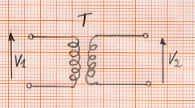 T
V1
V2